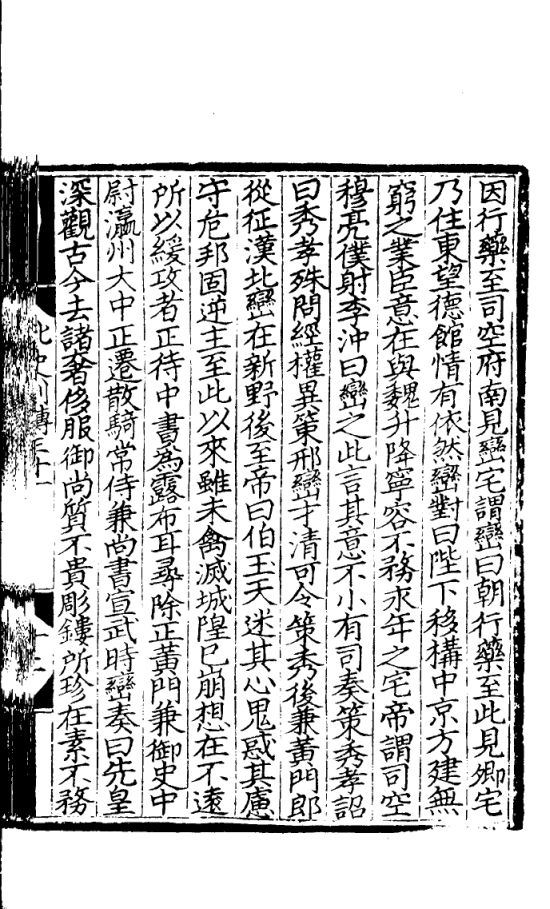 因行藥至司空府南見巒宅謂巒曰朝行藥至此見卿宅
乃住東望德館情有依然巒對曰陛下移構中京方建無
窮之業臣意在與魏升降寧容不務永年之宅帝謂司空
穆亮僕射李沖曰巒之此言其意不小有司奏策秀孝詔
曰秀孝殊問經權異策邢巒才清可令策秀後兼黃門郎
從征漢北巒在新野後至帝曰伯玉天迷其心鬼惑其慮
守危邦固逆主至此以來雖未禽滅城隍已崩想在不遠
所以緩攻者正待中書為露布耳尋除正黃門兼御史中
尉瀛州大中正遷散騎常侍兼尚書宣武時巒奏曰先皇
深觀古今去諸奢侈服御尚質不貴彫鏤所珍在素不務
北史列傳三十一